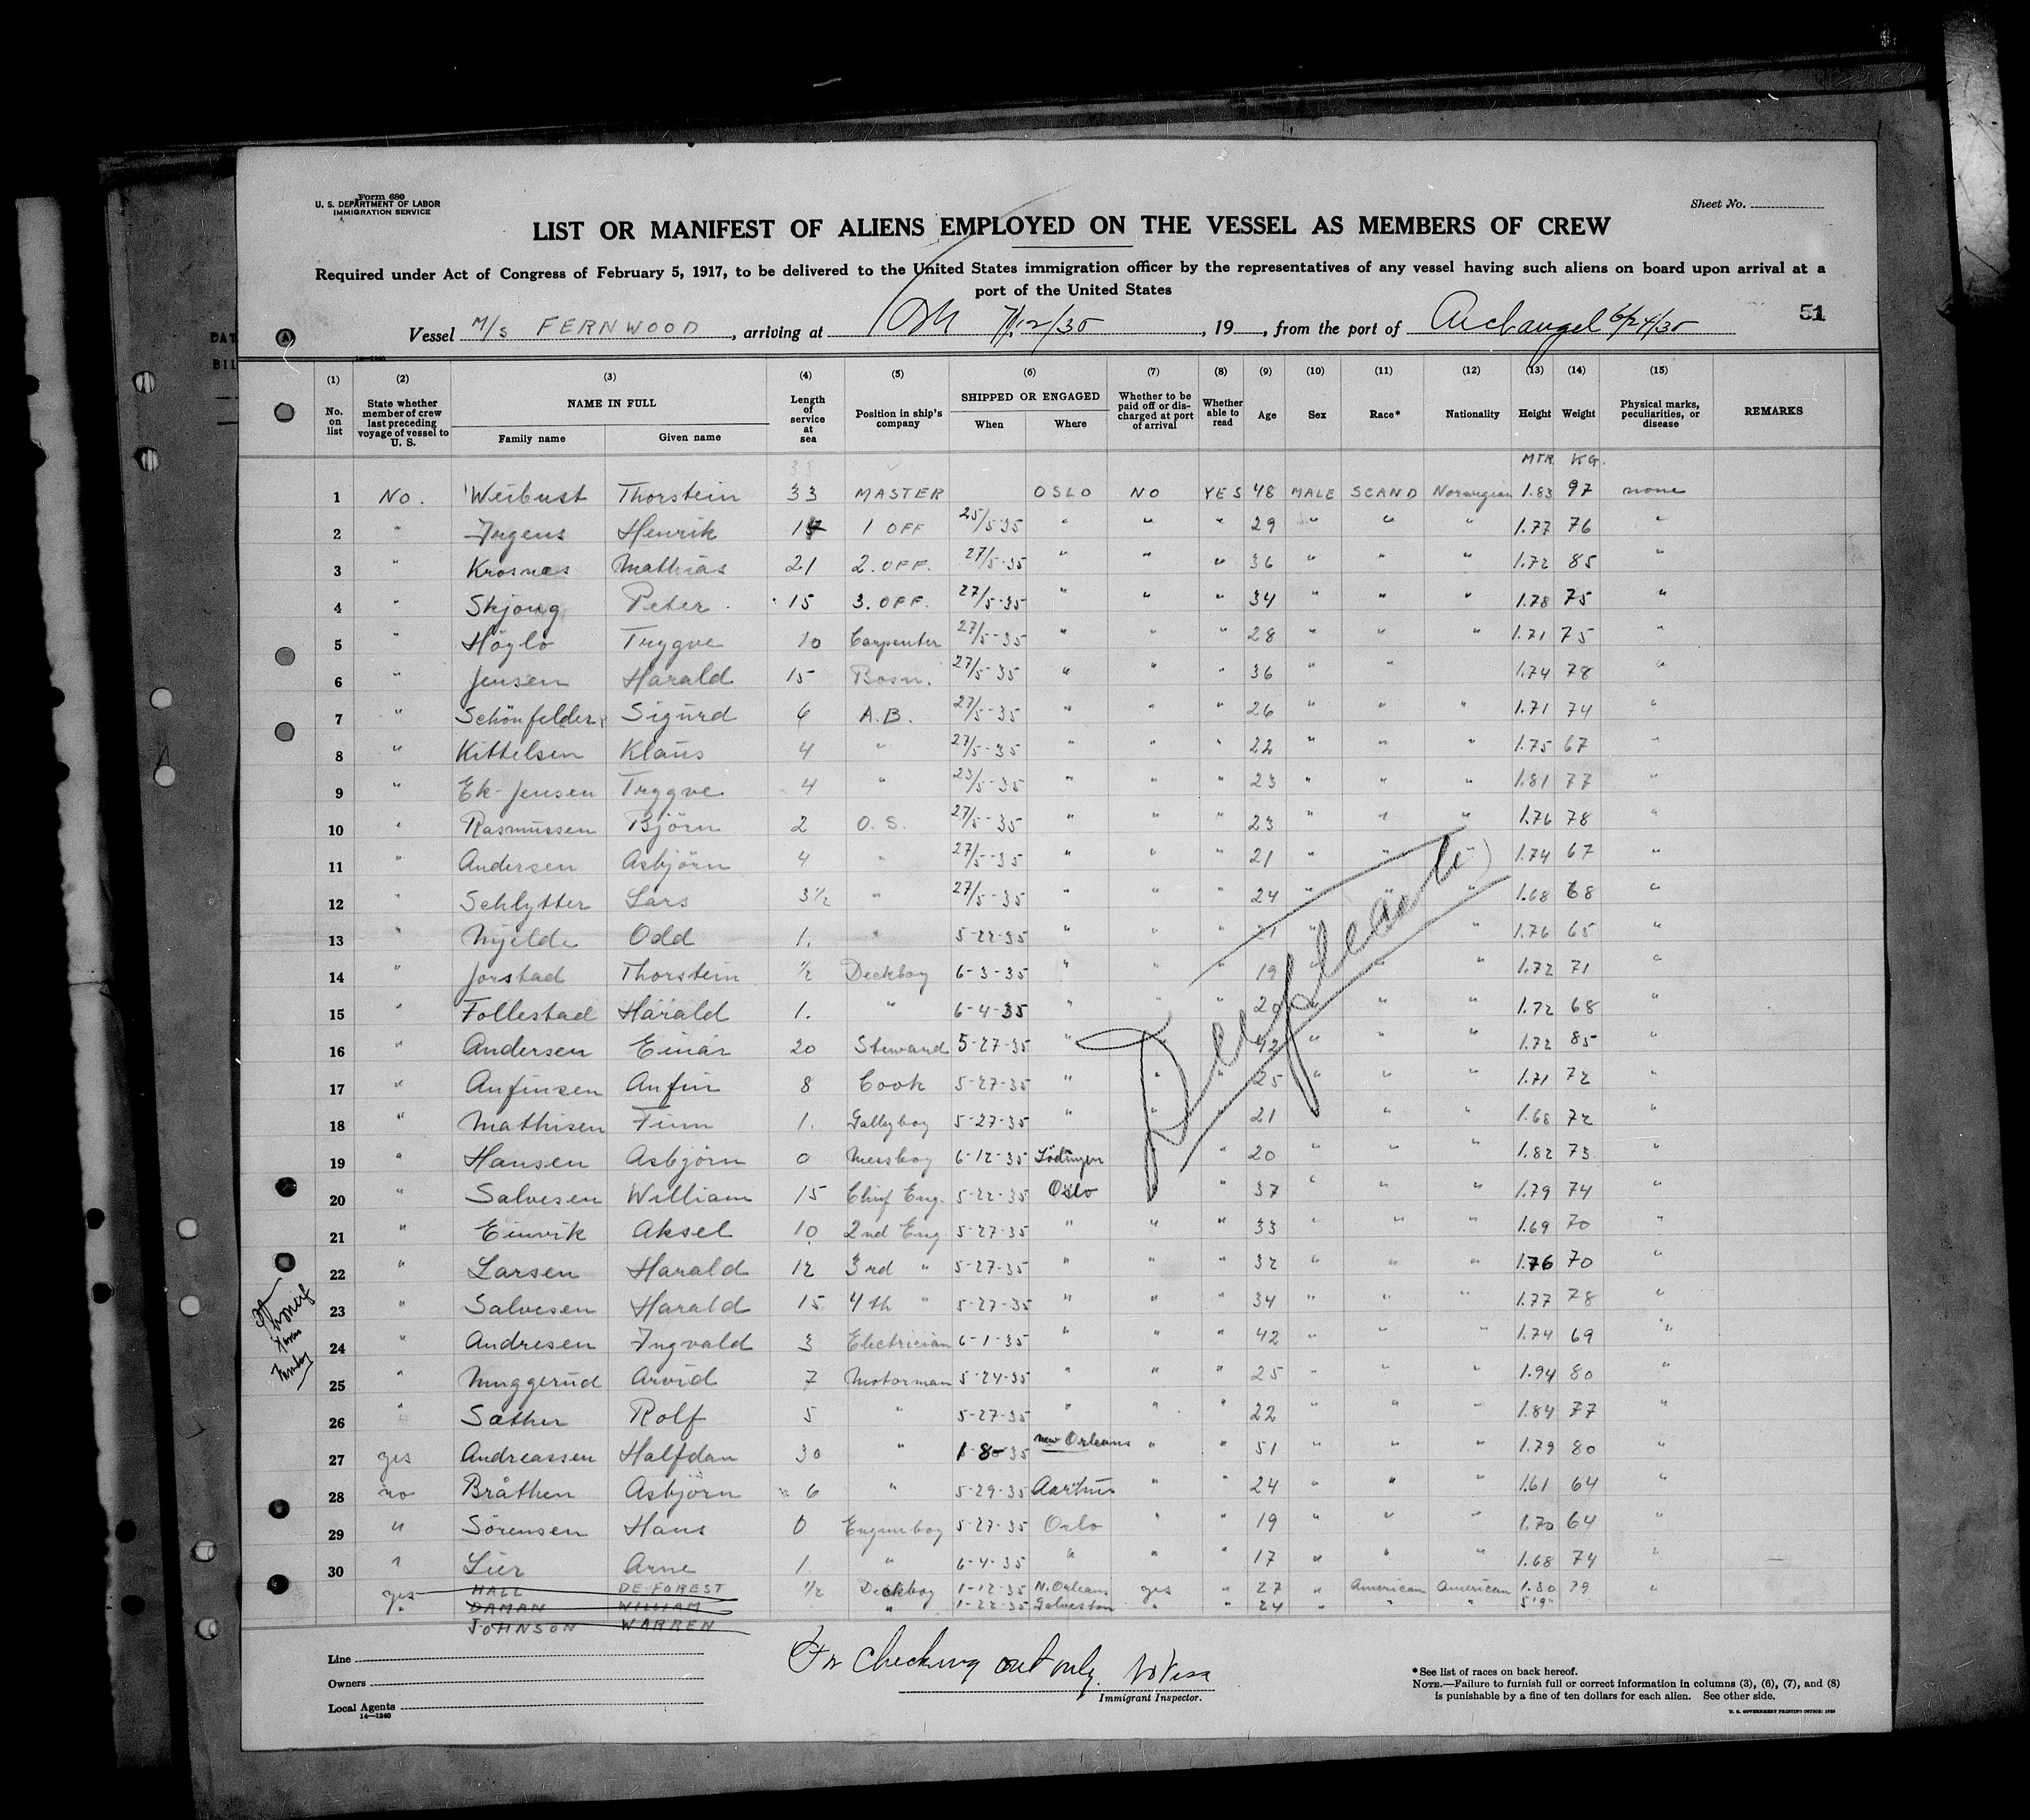 Form 680
U. S. DEPARTMENT OF LABOR
IMMIGRATION SERVICE
Sheet No.
LIST OR MANIFEST OF ALIENS EMPLOYED ON THE VESSEL AS MEMBERS OF CREW
Required under Act of Congress of February 5, 1917, to be delivered to the United States immigration officer by the representatives of any vessel having such aliens on board upon arrival at a
port of the United States
51
Vessel M/S FERNWOOD, arriving at 7/12/35, 19, from the port of Archangel 6/24/35
14-1240
(1) (2) (3) (4) (5) (6) (7) (8) (9) (10) (11) (12) (13) (14) (15)
No. on list State whether member of crew last preceding voyage of vessel to U. S. NAME IN FULL Family name Given name Length of service at sea Position in ship's company SHIPPED OR ENGAGED When Where Whether to be paid off or discharged at port of arrival Whether able to read Age Sex Race* Nationality Height Weight Physical marks, peculiarities, or disease REMARKS
MTR KG.
1 No. Weibust Thorstein 33 MASTER OSLO NO YES 48 MALE SCAND Norwegian 1.83 97 none
2 " Irgens Henrik 1 OFF 25/5 35 " " " 29 " " " 1.77 76 "
3 " Krosnes Mathias 21 2. OFF. 27/5-35 " " " 36 " " " 1.72 85 "
4 " Skjong Peter 15 3. OFF. 27/5-35 " " " 34 " " " 1.78 75 "
5 " Höylo Trygve 10 Carpenter 27/5-35 " " " 28 " " " 1.71 75 "
6 " Jensen Harald 15 Bosn. 27/5-35 " " " 36 " " " 1.74 78 "
7 " Schönfelder Sigurd 6 A.B. 27/5-35 " " " 26 " " " 1.71 74 "
8 " Kittelsen Klaus 4 " 27/5-35 " " " 22 " " " 1.75 67 "
9 " Ek-Jensen Tryggve 4 " 23/5-35 " " " 23 " " " 1.81 77 "
10 " Rasmussen Björn 2 O. S. 27/5-35 " " " 23 " " " 1.76 78 "
11 " Andersen Asbjörn 4 " 27/5-35 " " " 21 " " " 1.74 67 "
12 " Schlytter Lars 3½ " 27/5-35 " " " 24 " " " 1.68 68 "
13 " Mjelde Odd 1. " 5-22-35 " " " 21 " " " 1.76 65 "
14 " Jorstad Thorstein ½ Deckboy 6-3-35 " " " 19 " " " 1.72 71 "
15 " Follestad Harald 1. " 6-4-35 " " " 20 " " " 1.72 68 "
16 " Andersen Einar 20 Steward 5-27-35 " " " 42 " " " 1.72 85 "
17 " Anfinsen Anfin 8 Cook 5-27-35 " " " 25 " " " 1.71 72 "
18 " Mathisen Finn 1. Galleyboy 5-27-35 " " " 21 " " " 1.68 72 "
19 " Hansen Asbjörn 0 Messboy 6-12-35 Lödingen " " 20 " " " 1.82 73 "
20 " Salvesen William 15 Chief Eng. 5-22-35 Oslo " " 37 " " " 1.79 74 "
21 " Einvik Aksel 10 2nd Eng 5-27-35 " " " 33 " " " 1.69 70 "
22 " Larsen Harald 12 3rd " 5-27-35 " " " 32 " " " 1.76 70 "
23 " Salvesen Harald 15 4th " 5-27-35 " " " 34 " " " 1.77 78 "
24 " Andresen Ingvald 3 Electrician 6-1-35 " " " 42 " " " 1.74 69 "
25 " Muggerud Arvid 7 Motorman 5-24-35 " " " 25 " " " 1.94 80 "
26 " Sather Rolf 5 " 5-27-35 " " " 22 " " " 1.84 77 "
27 yes Andreassen Halfdan 30 " 1-8-35 New Orleans " " 51 " " " 1.79 80 "
28 no Bråthen Asbjörn 6 " 5-29-35 Aarhus " " 24 " " " 1.61 64 "
29 " Sörensen Hans 0 Engineboy 5-27-35 Oslo " " 19 " " " 1.70 64 "
30 " Lier Arne 1. " 6-4-35 " " " 17 " " " 1.68 74 "
yes HALL DE FOREST ½ Deckboy 1-12-35 N. Orleans yes " 27 " American American 1.80 79 "
" DAMAN WILLIAM " 1-22-35 Galveston " " 24 " " " 5'9"
JOHNSON WARREN
Line
Owners
Local Agents
14-1240
For checking out only. No Visa
Immigrant Inspector.
*See list of races on back hereof.
NOTE.—Failure to furnish full or correct information in columns (3), (6), (7), and (8)
is punishable by a fine of ten dollars for each alien. See other side.
U. S. GOVERNMENT PRINTING OFFICE: 1929